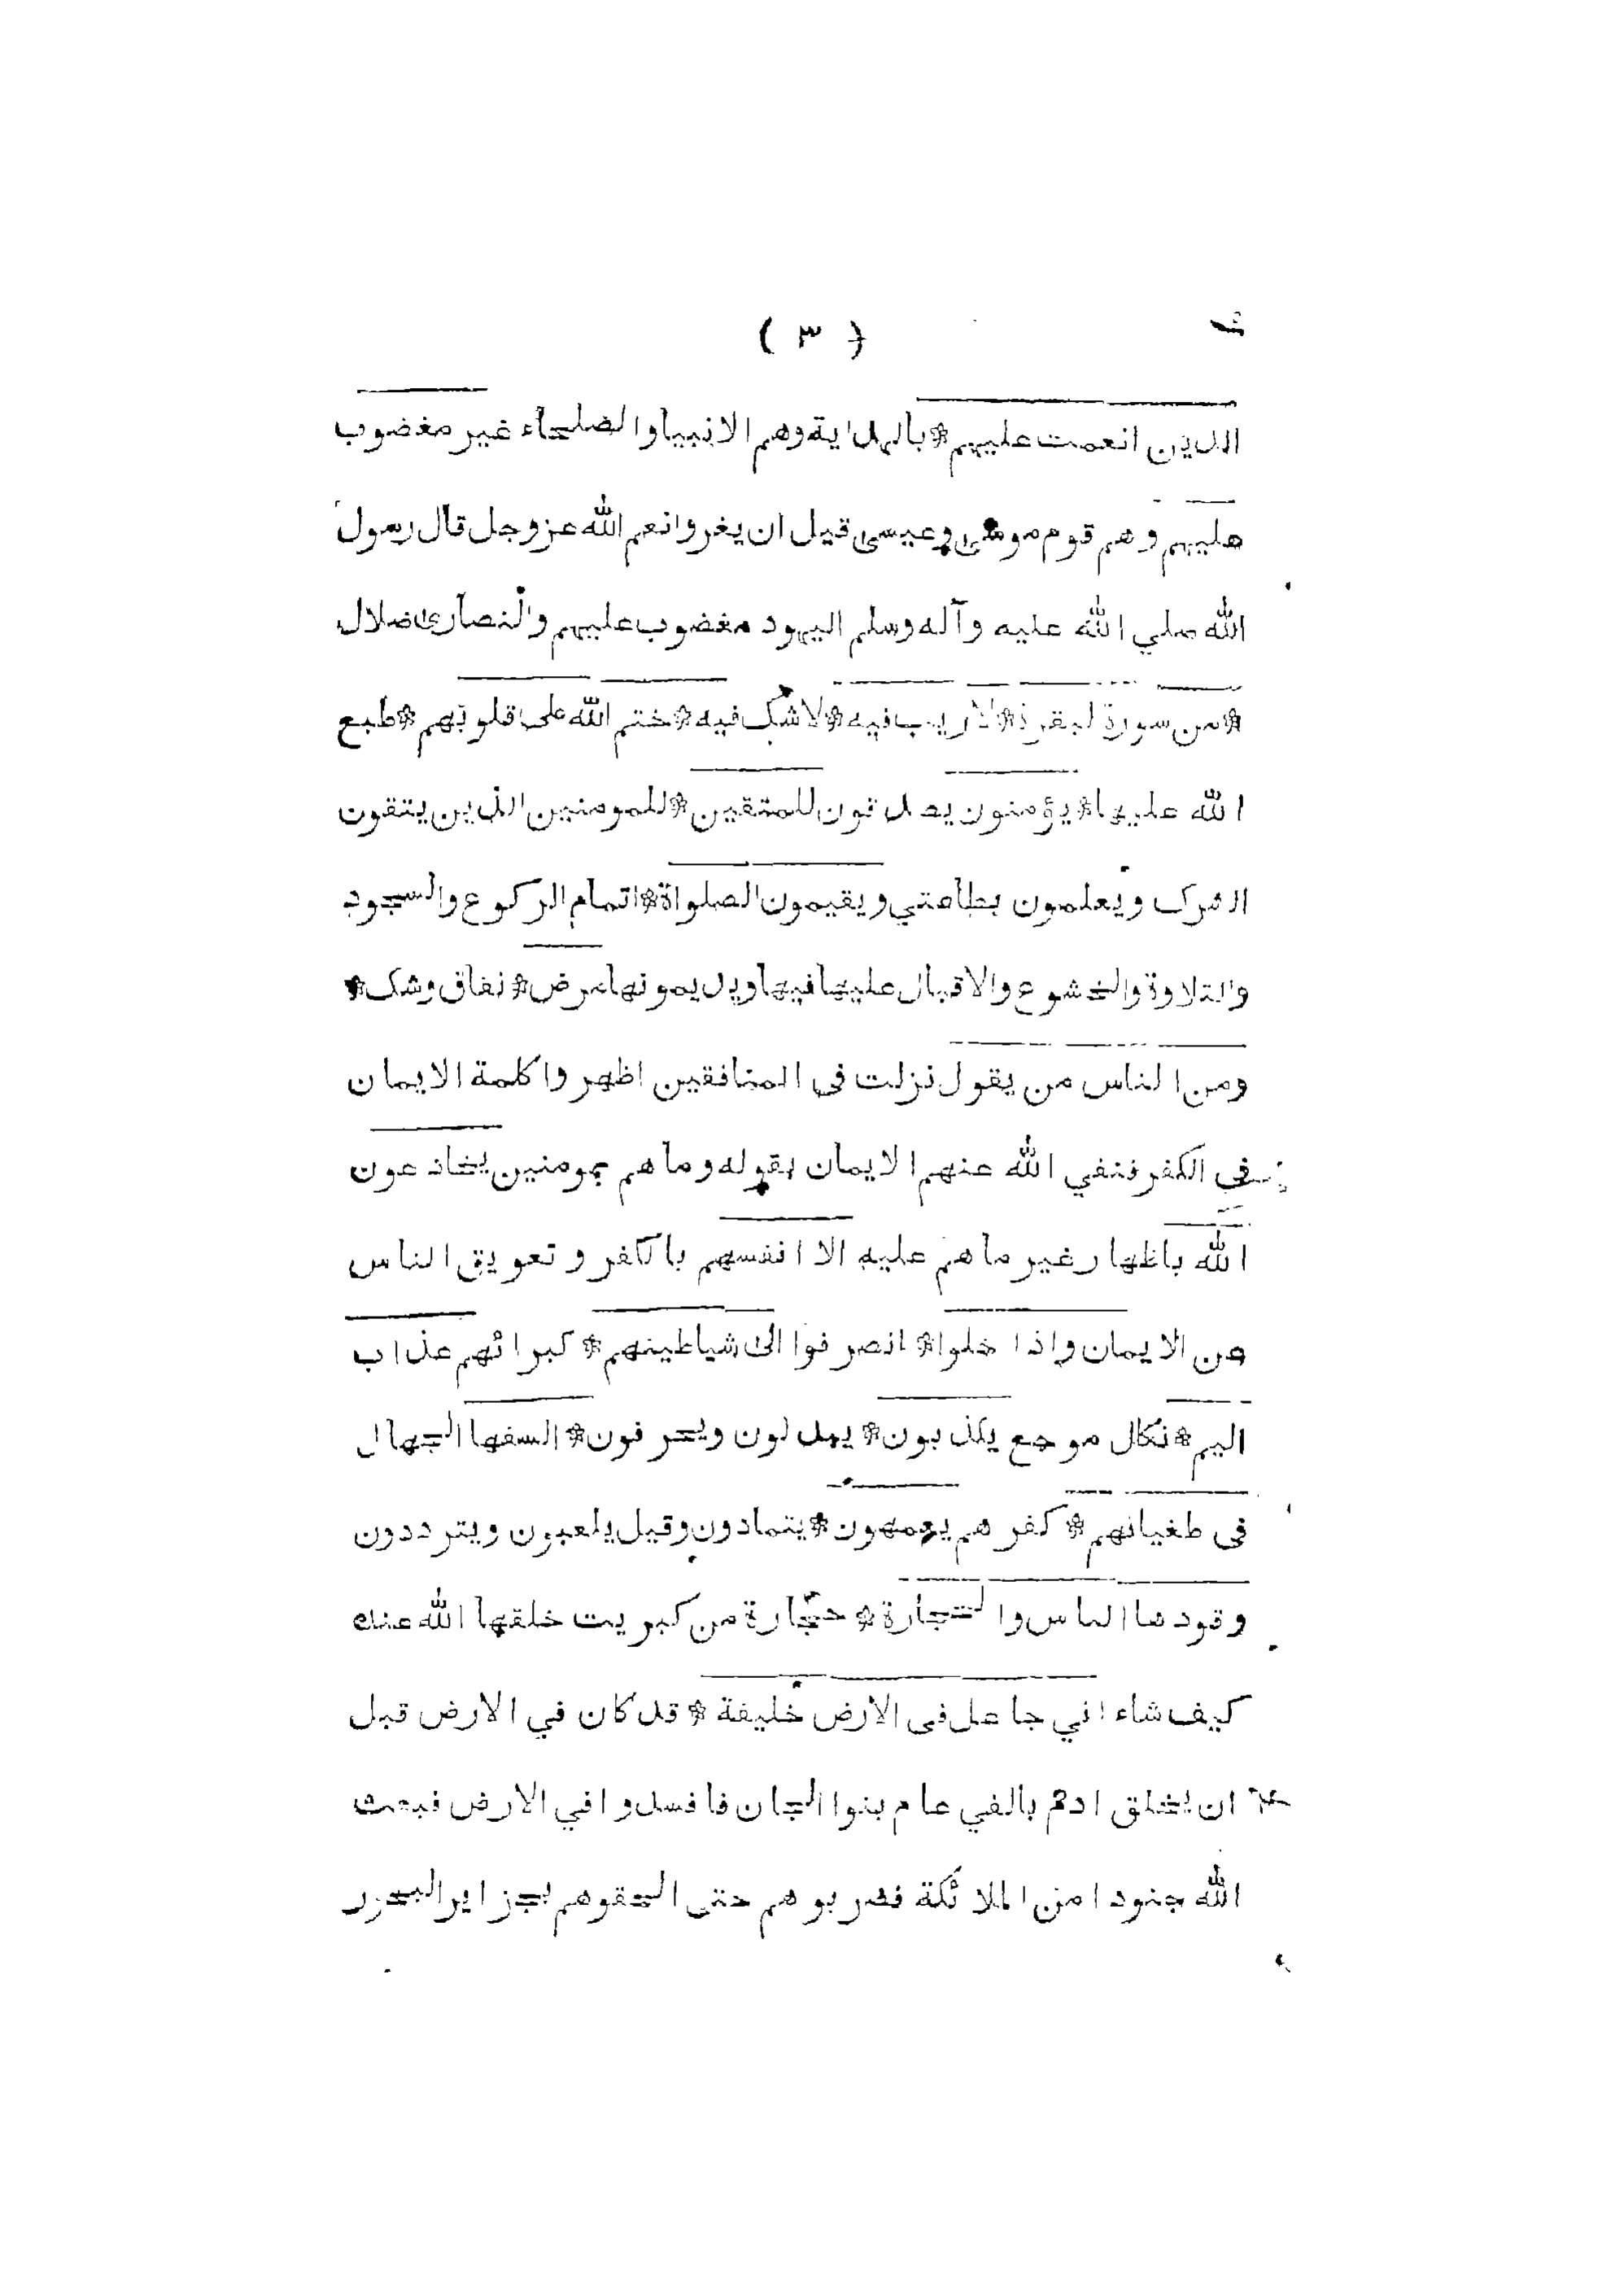 ( ٣ )
الذين انعمت عليهم * بالهداية وهم الانبيا والصلحاء غير مغضوب
عليهم وهم قوم موسى وعيسى قيل ان يغروا نعم الله عز وجل قال رسول
الله صلي الله عليه وآله وسلم اليهود مغضوب عليهم والنصارى ضلال
* من سورة لبقرة * لا ريب فيه * لا شك فيه * ختم الله على قلوبهم * طبع
الله عليها * يؤمنون يصدقون للمتقين * للمومنين الذين يتقون
الشرك ويعلمون بطاعتي ويقيمون الصلواة * اتمام الركوع والسجود
والتلاوة والخشوع والاقبال عليها فيها ويديمونها مرض * نفاق وشك *
ومن الناس من يقول نزلت فى المنافقين اظهروا كلمة الايمان
فى الكفر فنفي الله عنهم الايمان بقوله وما هم بمومنين يخادعون
الله باظهار غير ما هم عليه الا انفسهم بالكفر وتعويق الناس
عن الايمان واذا خلوا * انصرفوا الى شياطينهم * كبرائهم عذاب
اليم * نكال موجع يكذبون * يبدلون ويحرفون * السفها الجهال
فى طغيانهم * كفرهم يعمهون * يتمادون وقيل يلعبون ويترددون
وقودها الناس والحجارة * حجارة من كبريت خلقها الله عنده
كيف شاء اني جاعل فى الارض خليفة * قد كان في الارض قبل
ان يخلق ادم بالفي عام بنوا الجان فافسدوا في الارض فبعث
الله جنودا من الملائكة فضربوهم حتى الحقوهم بجزاير البحور